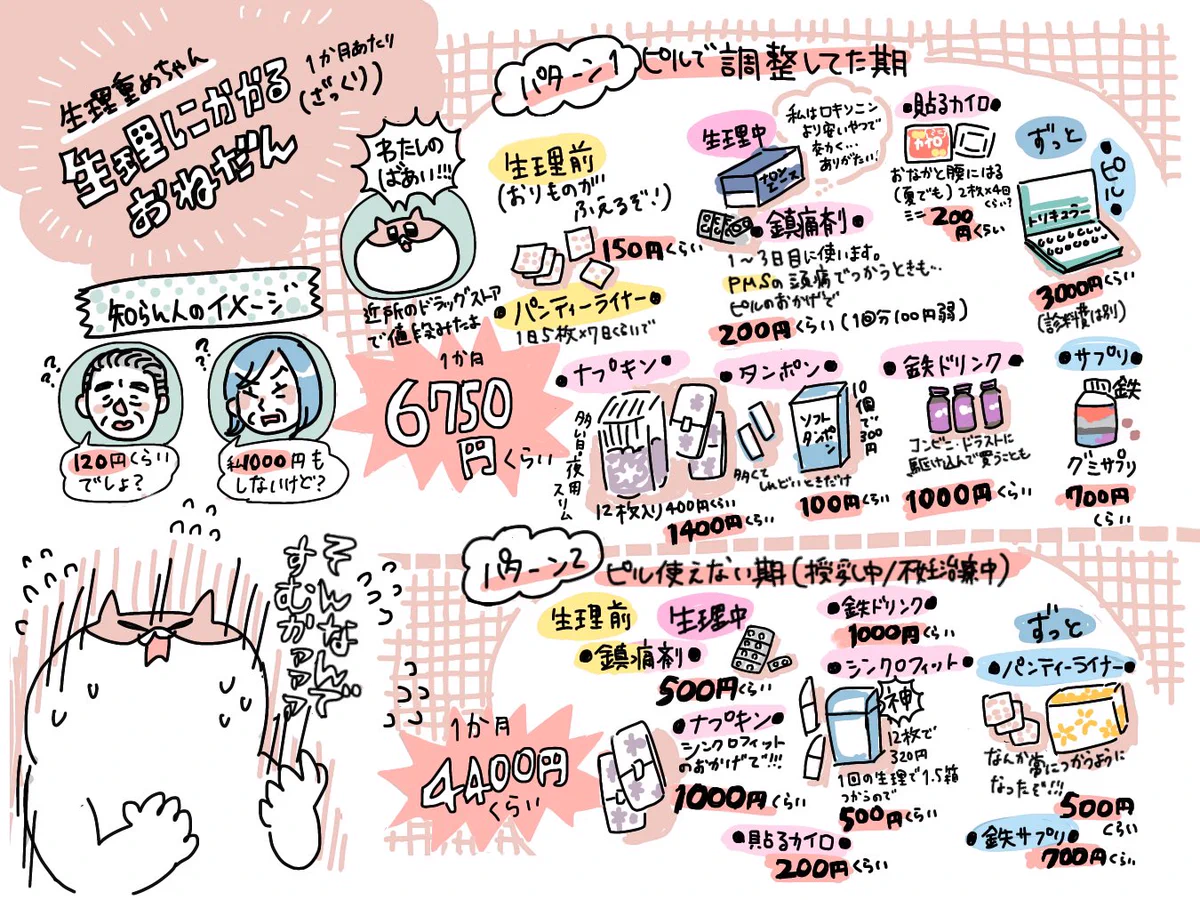 生理重めちゃん
生理にかかる
おねだん
1か月あたり
(ざっくり)
わたしの
ばあい!!!
近所のドラッグストア
で値段みたよ
知らん人のイメージ
???
120円くらい
でしょ?
???
私1000円も
しないけど?
そんなんで
すむかァァァ
パターン1
ピルで調整してた期
1か月
6750
円くらい
生理前
(おりものが
ふえるぞ!)
150円くらい
パンティーライナー
1日5枚×7日くらいで
生理中
ナロン
エース
私はロキソニン
より安いやつで
なおかく…
ありがたい!
鎮痛剤
1〜3日目に使います。
PMSの頭痛でつかうときも…
ピルのおかげで
200円くらい(1回分100円弱)
貼るカイロ
カイロ
おなかと腰にはる
(夏でも)2枚×4日
くらい?
ミニ
200
円くらい
ずっと
ピル
トリキュラー
3000円くらい
(診料費は別)
ナプキン
多い日・夜用
スリム
12枚入り400円くらい
1400円くらい
タンポン
ソフト
タンポン
10個で300円
多くて
しんどいときだけ
100円くらい
鉄ドリンク
コンビニ・ドラストに
駆け込んで買うことも
1000円くらい
サプリ
鉄
グミサプリ
700円
くらい
パターン2
ピル使えない期(授乳中/不妊治療中)
1か月
4400円
くらい
生理前
生理中
鎮痛剤
500円くらい
ナプキン
シンクロフィット
のおかげで!!!
1000円くらい
貼るカイロ
200円くらい
鉄ドリンク
1000円くらい
シンクロフィット
神
12枚で
320円
1回の生理で1.5箱
つかうので
500円くらい
ずっと
パンティーライナー
なんか常につかうように
なったぞ!!!
500円
くらい
鉄サプリ
700円くらい